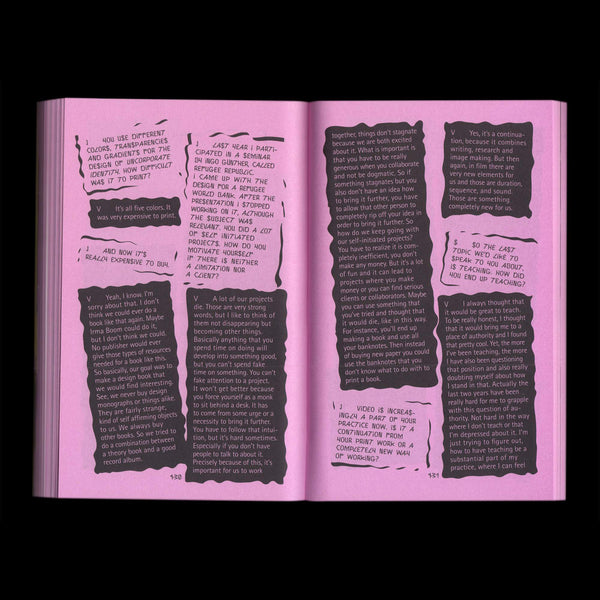 J YOU USE DIFFERENT
COLORS, TRANSPARENCIES
AND GRADIENTS FOR THE
DESIGN OF UNCORPORATE
IDENTITY. HOW DIFFICULT
WAS IT TO PRINT?
V It's all five colors. It
was very expensive to print.
J AND NOW IT'S
REALLY EXPENSIVE TO BUY.
V Yeah, I know. I'm
sorry about that. I don't
think we could ever do a
book like that again. Maybe
Irma Boom could do it,
but I don't think we could.
No publisher would ever
give those types of resources
needed for a book like this.
So basically, our goal was to
make a design book that
we would find interesting.
See, we never buy design
monographs or things alike.
They are fairly strange,
kind of self affirming objects
to us. We always buy
other books. So we tried to
do a combination between
a theory book and a good
record album.
LAST YEAR I PARTI-
CIPATED IN A SEMINAR
BY INGO GÜNTHER, CALLED
REFUGEE REPUBLIC.
I CAME UP WITH THE
DESIGN FOR A REFUGEE
WORLD BANK. AFTER THE
PRESENTATION I STOPPED
WORKING ON IT, ALTHOUGH
THE SUBJECT WAS
RELEVANT. YOU DID A LOT
OF SELF INITIATED
PROJECTS. HOW DO YOU
MOTIVATE YOURSELF
IF THERE IS NEITHER
A LIMITATION NOR
A CLIENT?
V A lot of our projects
die. Those are very strong
words, but I like to think of
them not disappearing but
becoming other things.
Basically anything that you
spend time on doing will
develop into something good,
but you can't spend fake
time on something. You can't
fake attention to a project.
It won't get better because
you force yourself as a monk
to sit behind a desk. It has
to come from some urge or a
necessity to bring it further.
You have to follow that intui-
tion, but it's hard sometimes.
Especially if you don't have
people to talk to about it.
Precisely because of this, it's
important for us to work
430
together, things don't stagnate
because we are both excited
about it. What is important is
that you have to be really
generous when you collaborate
and not be dogmatic. So if
something stagnates but you
also don't have an idea how
to bring it further, you have
to allow that other person to
completely rip off your idea in
order to bring it further. So
how do we keep going with
our self-initiated projects?
You have to realize it is com-
pletely inefficient, you don't
make any money. But it's a lot
of fun and it can lead to
projects where you make
money or you can find serious
clients or collaborators. Maybe
you can use something that
you've tried and thought that
it would die, like in this way.
For instance, you'll end up
making a book and use all
your banknotes. Then instead
of buying new paper you could
use the banknotes that you
don't know what to do with to
print a book.
J VIDEO IS INCREAS-
INGLY A PART OF YOUR
PRACTICE NOW. IS IT A
CONTINUATION FROM
YOUR PRINT WORK OR A
COMPLETELY NEW WAY
OF WORKING?
V Yes, it's a continua-
tion, because it combines
writing, research and
image making. But then
again, in film there are
very new elements for
us and those are duration,
sequence, and sound.
Those are something
completely new for us.
S SO THE LAST
TOPIC WE'D LIKE TO
SPEAK TO YOU ABOUT,
IS TEACHING. HOW DID
YOU END UP TEACHING?
V I always thought that
it would be great to teach.
To be really honest, I thought
that it would bring me to a
place of authority and I found
that pretty cool. Yet, the more
I've been teaching, the more
I have also been questioning
that position and also really
doubting myself about how
I stand in that. Actually the
last two years have been
really hard for me to grapple
with this question of au-
thority. Not hard in the way
where I don't teach or that
I'm depressed about it. I'm
just trying to figure out,
how to have teaching be a
substantial part of my
practice, where I can feel
431